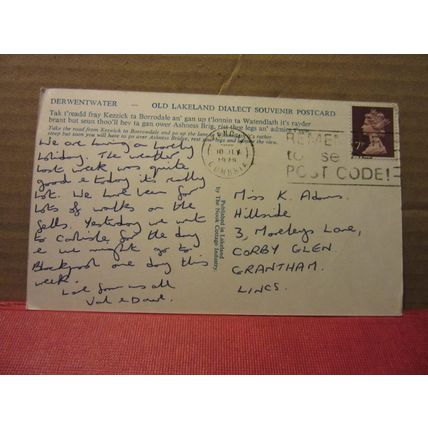 DERWENTWATER — OLD LAKELAND DIALECT SOUVENIR POSTCARD
Tak t'readd fray Kezzick ta Borrodale an' gan up t'lonnin ta Watendlath it's rayder
brant but seun thoo'll hev ta gan ower Ashness Brig, rist thee legs an' admire t'
Take the road from Keswick to Borrowdale and go up the lane it's rather
steep but soon you will have to go over Ashness Bridge, rest your legs and admire the view.
We are having a lovely
holiday. The weather
last week was quite
good & today it's really
hot. We have been for
lots of walks on the
fells. Yesterday we went
to Carlisle for the day
& we might go to
Blackpool one day this
week.
Love from us all
Val & Dave.
Published in Lakeland
by The Nook Cottage Industry.
1979
CUMBRIA
REMEMBER
to use
POST CODE!
7P
Miss K. Adams
Hillside
3, Morleys Lane,
CORBY GLEN.
GRANTHAM.
LINCS.